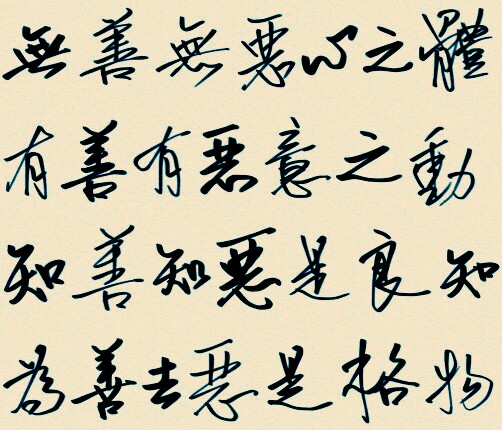 無善無惡心之體
有善有惡意之動
知善知惡是良知
為善去惡是格物